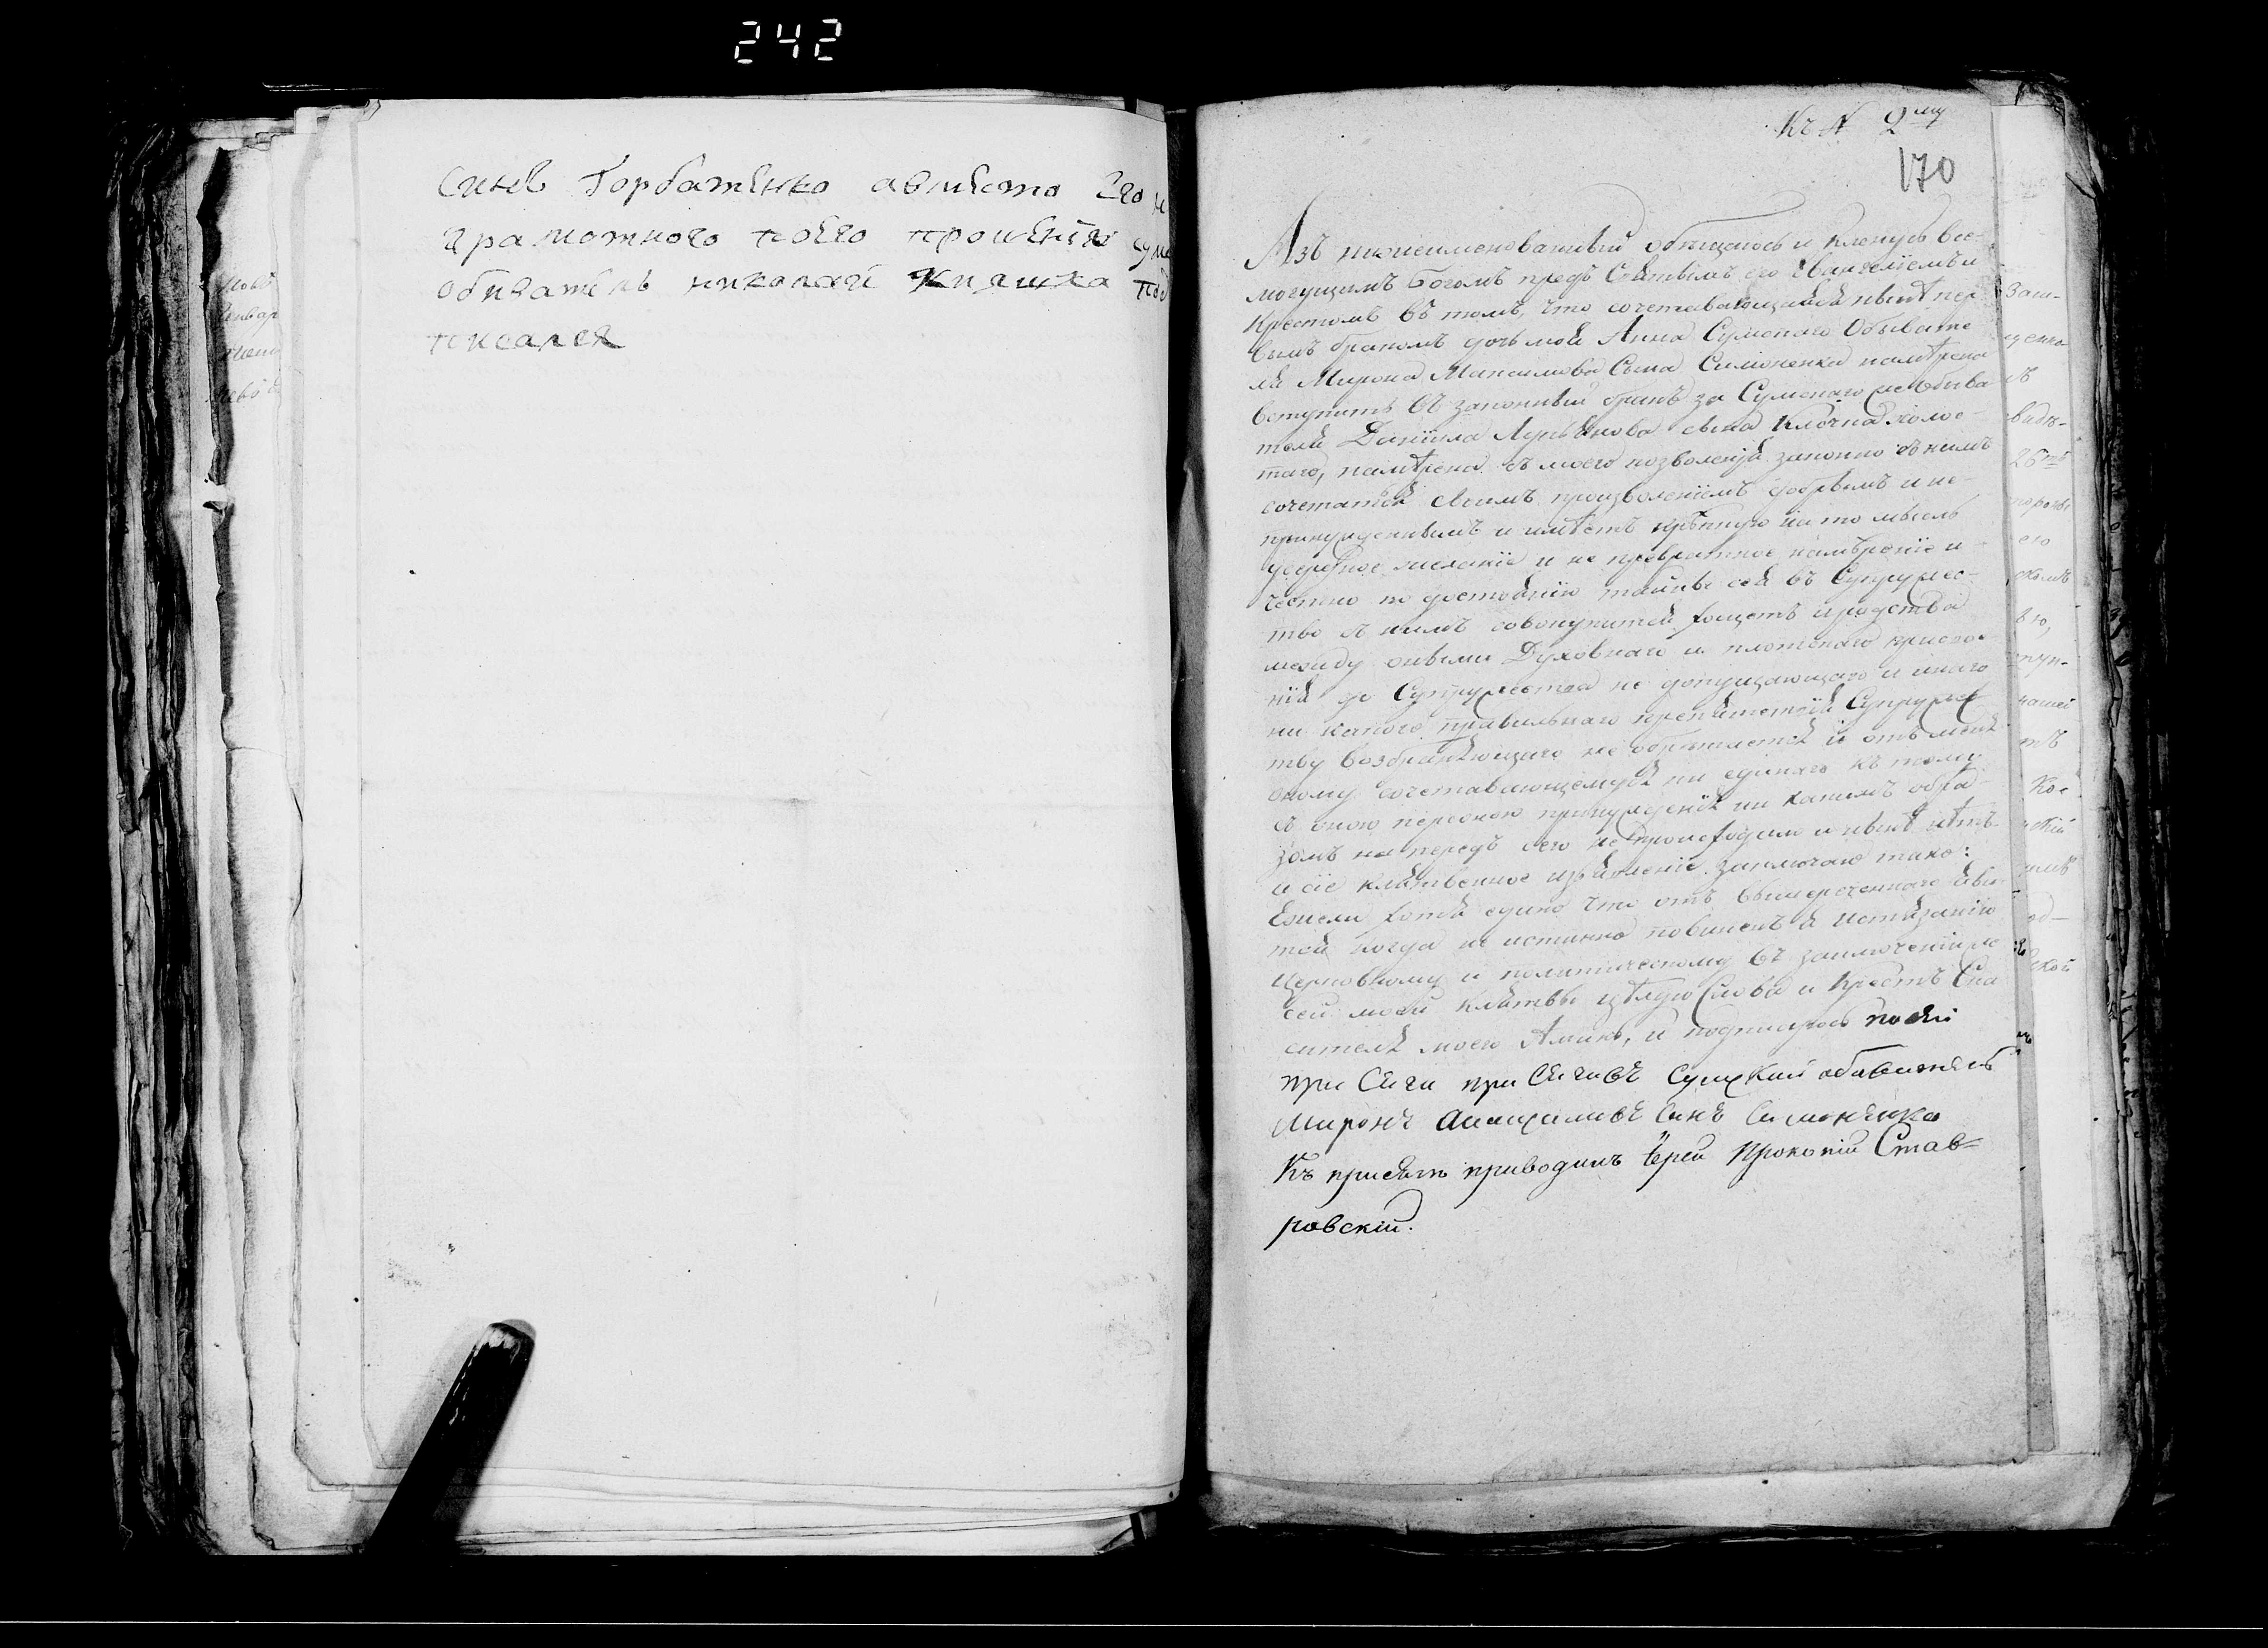 242
синъ Горбатѣнко авмѣсто его не
грамотного поѣго прошѣнїю сум
обиватѣль николай Кияшка под
писался
Къ № 2му
170
Азъ нижеименованный обѣщаюсь и кленусь все-
могущимъ Богомъ предъ Святымъ его Евангелїемъ и
Крестомъ въ томъ, что сочетавающаяся нынѣ пер
вымъ бракомъ дочь моя Анна Сумскаго Обывате
ля Мирона Максимова Сына Симоненка намѣрена
вступить въ законный бракъ за Сумскаго же обыва
теля Данїила Лукьянова сына Клочка холос-
таго, намѣрена съ моего позволенїя законно съ нимъ
сочетатся своимъ произволенїемъ добрымъ и не-
принужденнымъ и имѣетъ крѣпкую на то мысль
усердное желанїе и не превратное намѣренїе и
честно по достоянїю тайны сея въ Супружес-
тво съ нимъ совокупится хощетъ и родства
между оными Духовнаго и плотскаго присвое
нїя до Супружества не допущающаго и инаго
ни какого правильнаго препятствїя Супружес
тву возбраняющаго не обрѣтается и отъ меня
оному сочетавающемуся ни единаго къ тому
съ оною персоною принужденїя ни какимъ обра-
зомъ на передъ сего не происходило и нынѣ нѣтъ
и сїе клятвенное изъявленїе заключаю тако:
Ежели хотя едино что отъ вышереченнаго яви
тся когда не истинно повиненъ я истязанїю
церковному и политическому въ заключенїи же
сей моей клятвы цѣлую Слова и Крестъ Спа
сителя моего Аминь, и подпишусь
при Сяги при Сягивъ Сумский обиватель
Миронъ синъ Симонѣнко
Къ присягѣ приводилъ Іерей Прокопїй Став=
ровскїй.